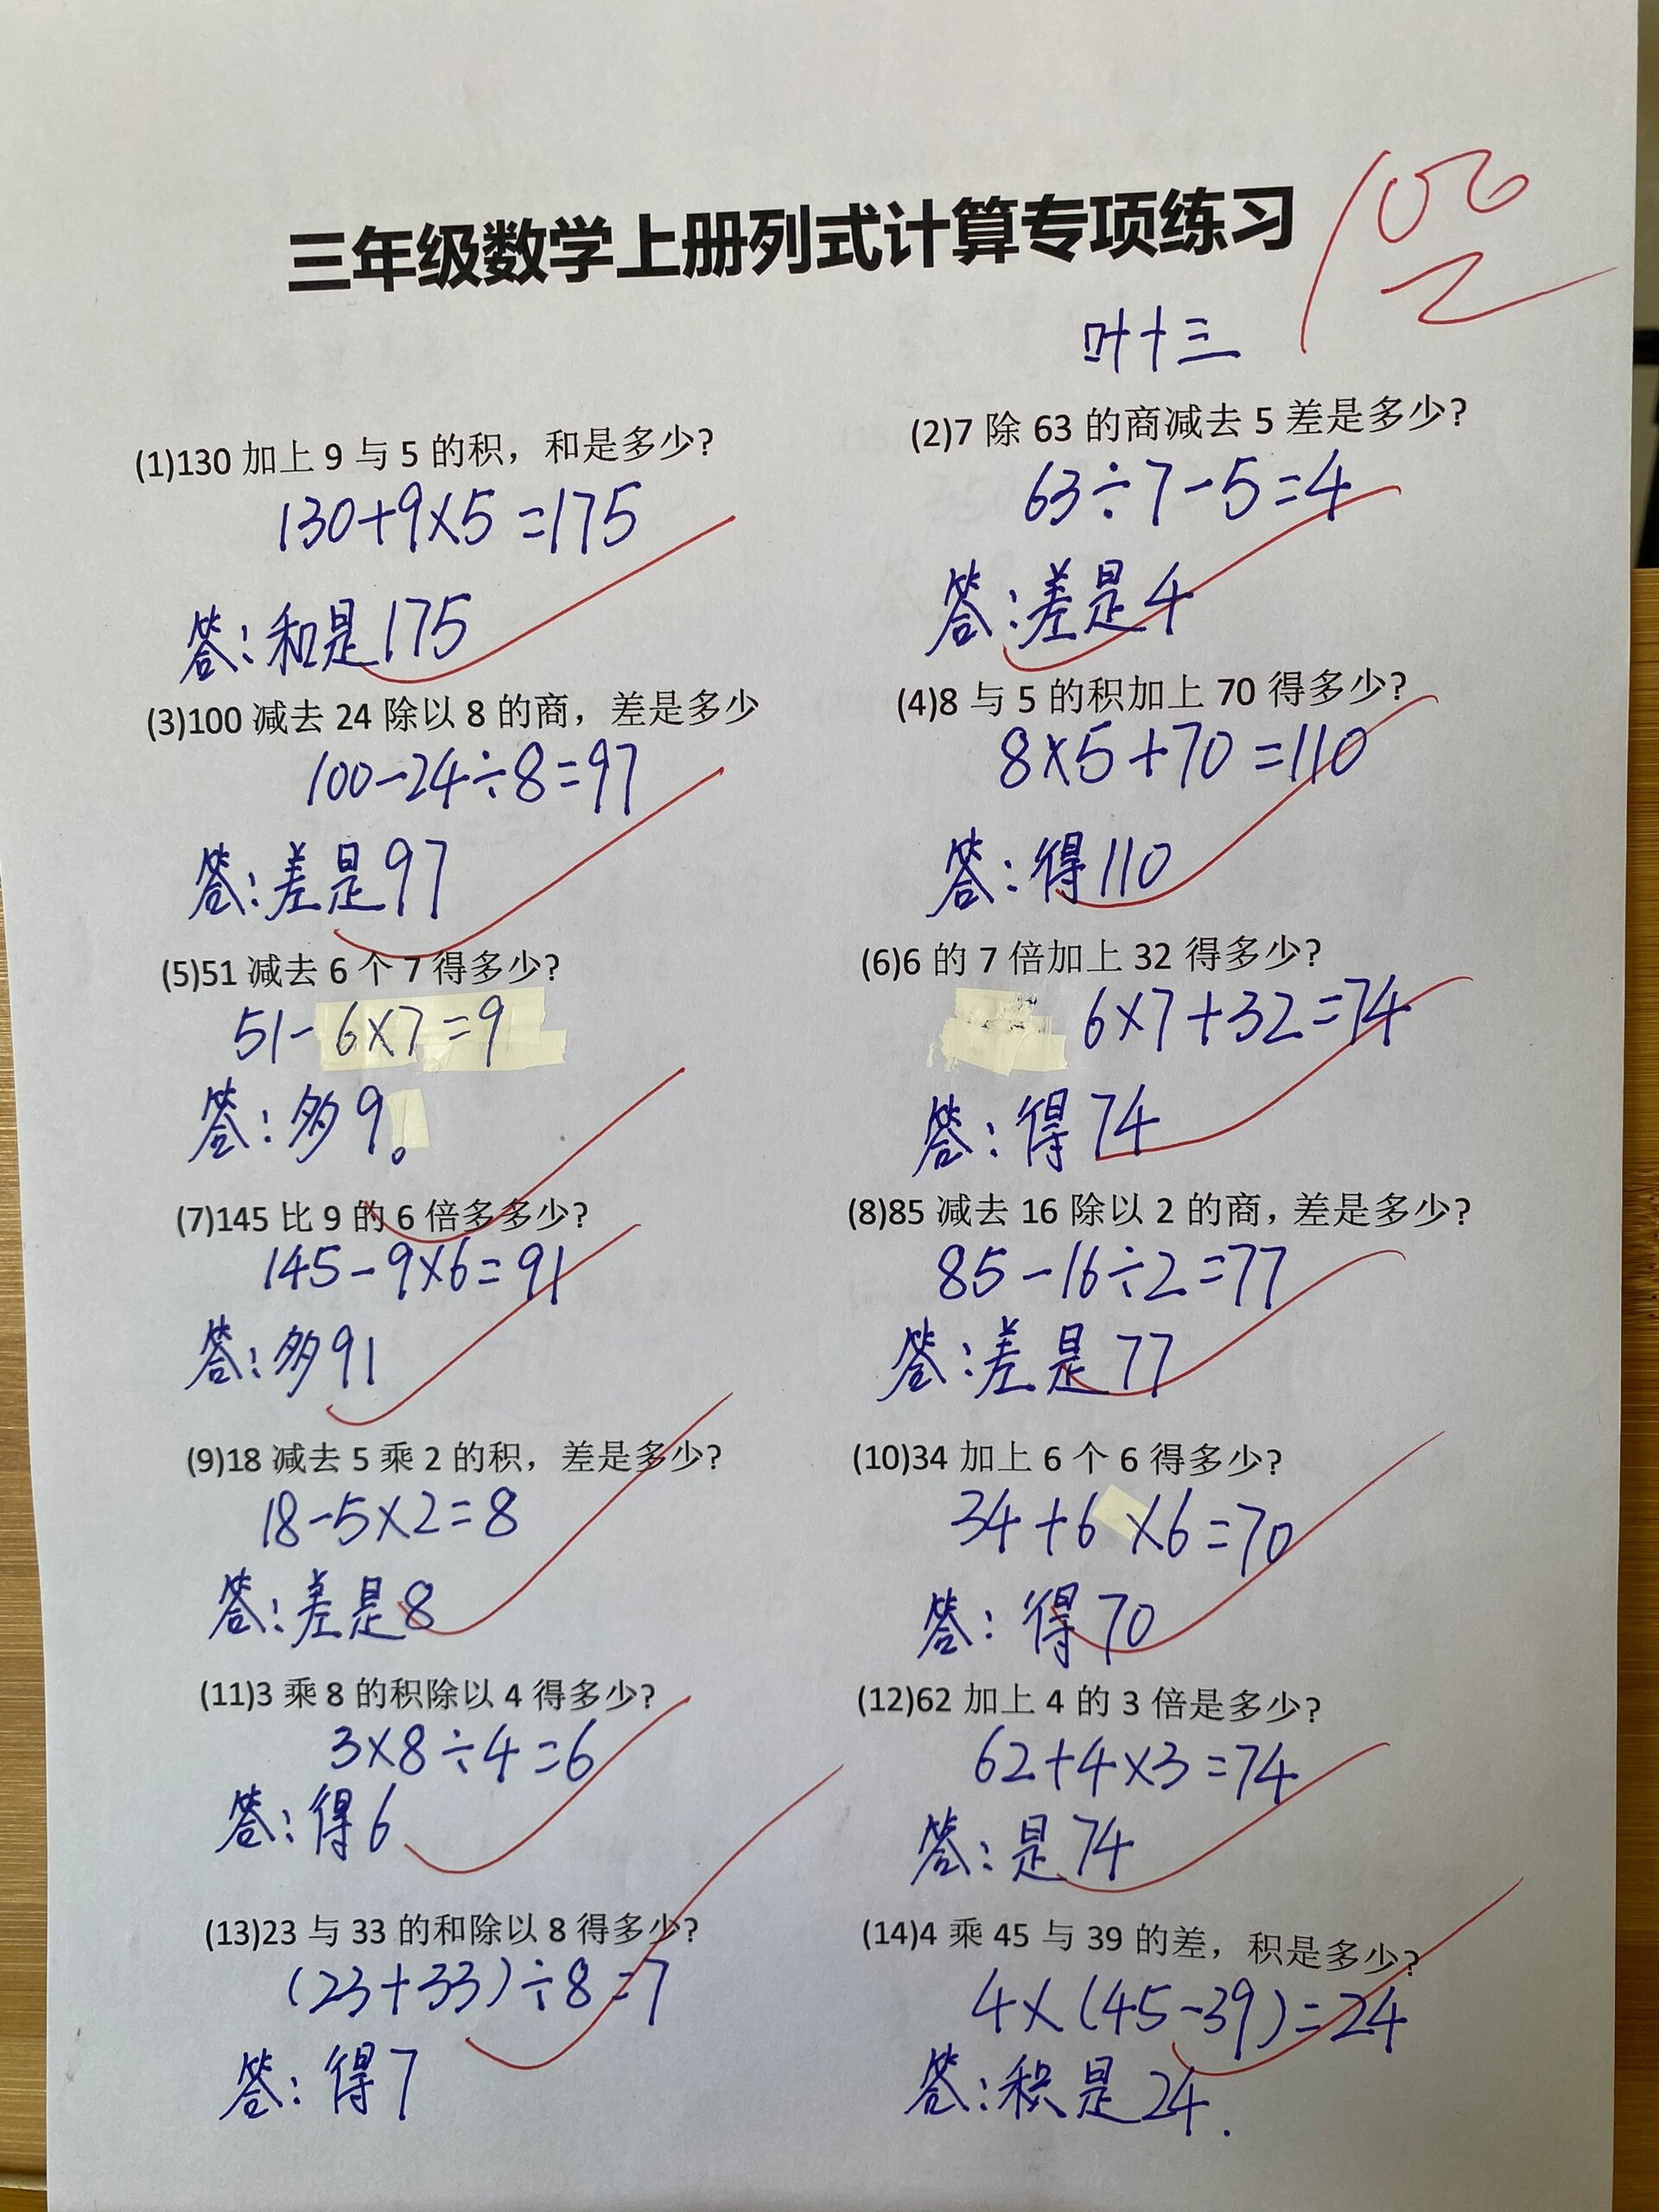 三年级数学上册列式计算专项练习
100
叶十三
(1)130 加上 9 与 5 的积，和是多少?
130+9×5=175
答:和是175
(2)7 除 63 的商减去 5 差是多少?
63÷7-5=4
答:差是4
(3)100 减去 24 除以 8 的商，差是多少
100-24÷8=97
答:差是97
(4)8 与 5 的积加上 70 得多少?
8×5+70=110
答:得110
(5)51 减去 6 个 7 得多少?
51-6×7=9
答:多9。
(6)6 的 7 倍加上 32 得多少?
6×7+32=74
答:得74
(7)145 比 9 的 6 倍多多少?
145-9×6=91
答:多91
(8)85 减去 16 除以 2 的商，差是多少?
85-16÷2=77
答:差是77
(9)18 减去 5 乘 2 的积，差是多少?
18-5×2=8
答:差是8
(10)34 加上 6 个 6 得多少?
34+6×6=70
答:得70
(11)3 乘 8 的积除以 4 得多少?
3×8÷4=6
答:得6
(12)62 加上 4 的 3 倍是多少?
62+4×3=74
答:是74
(13)23 与 33 的和除以 8 得多少?
(23+33)÷8=7
答:得7
(14)4 乘 45 与 39 的差，积是多少?
4×(45-39)=24
答:积是24.